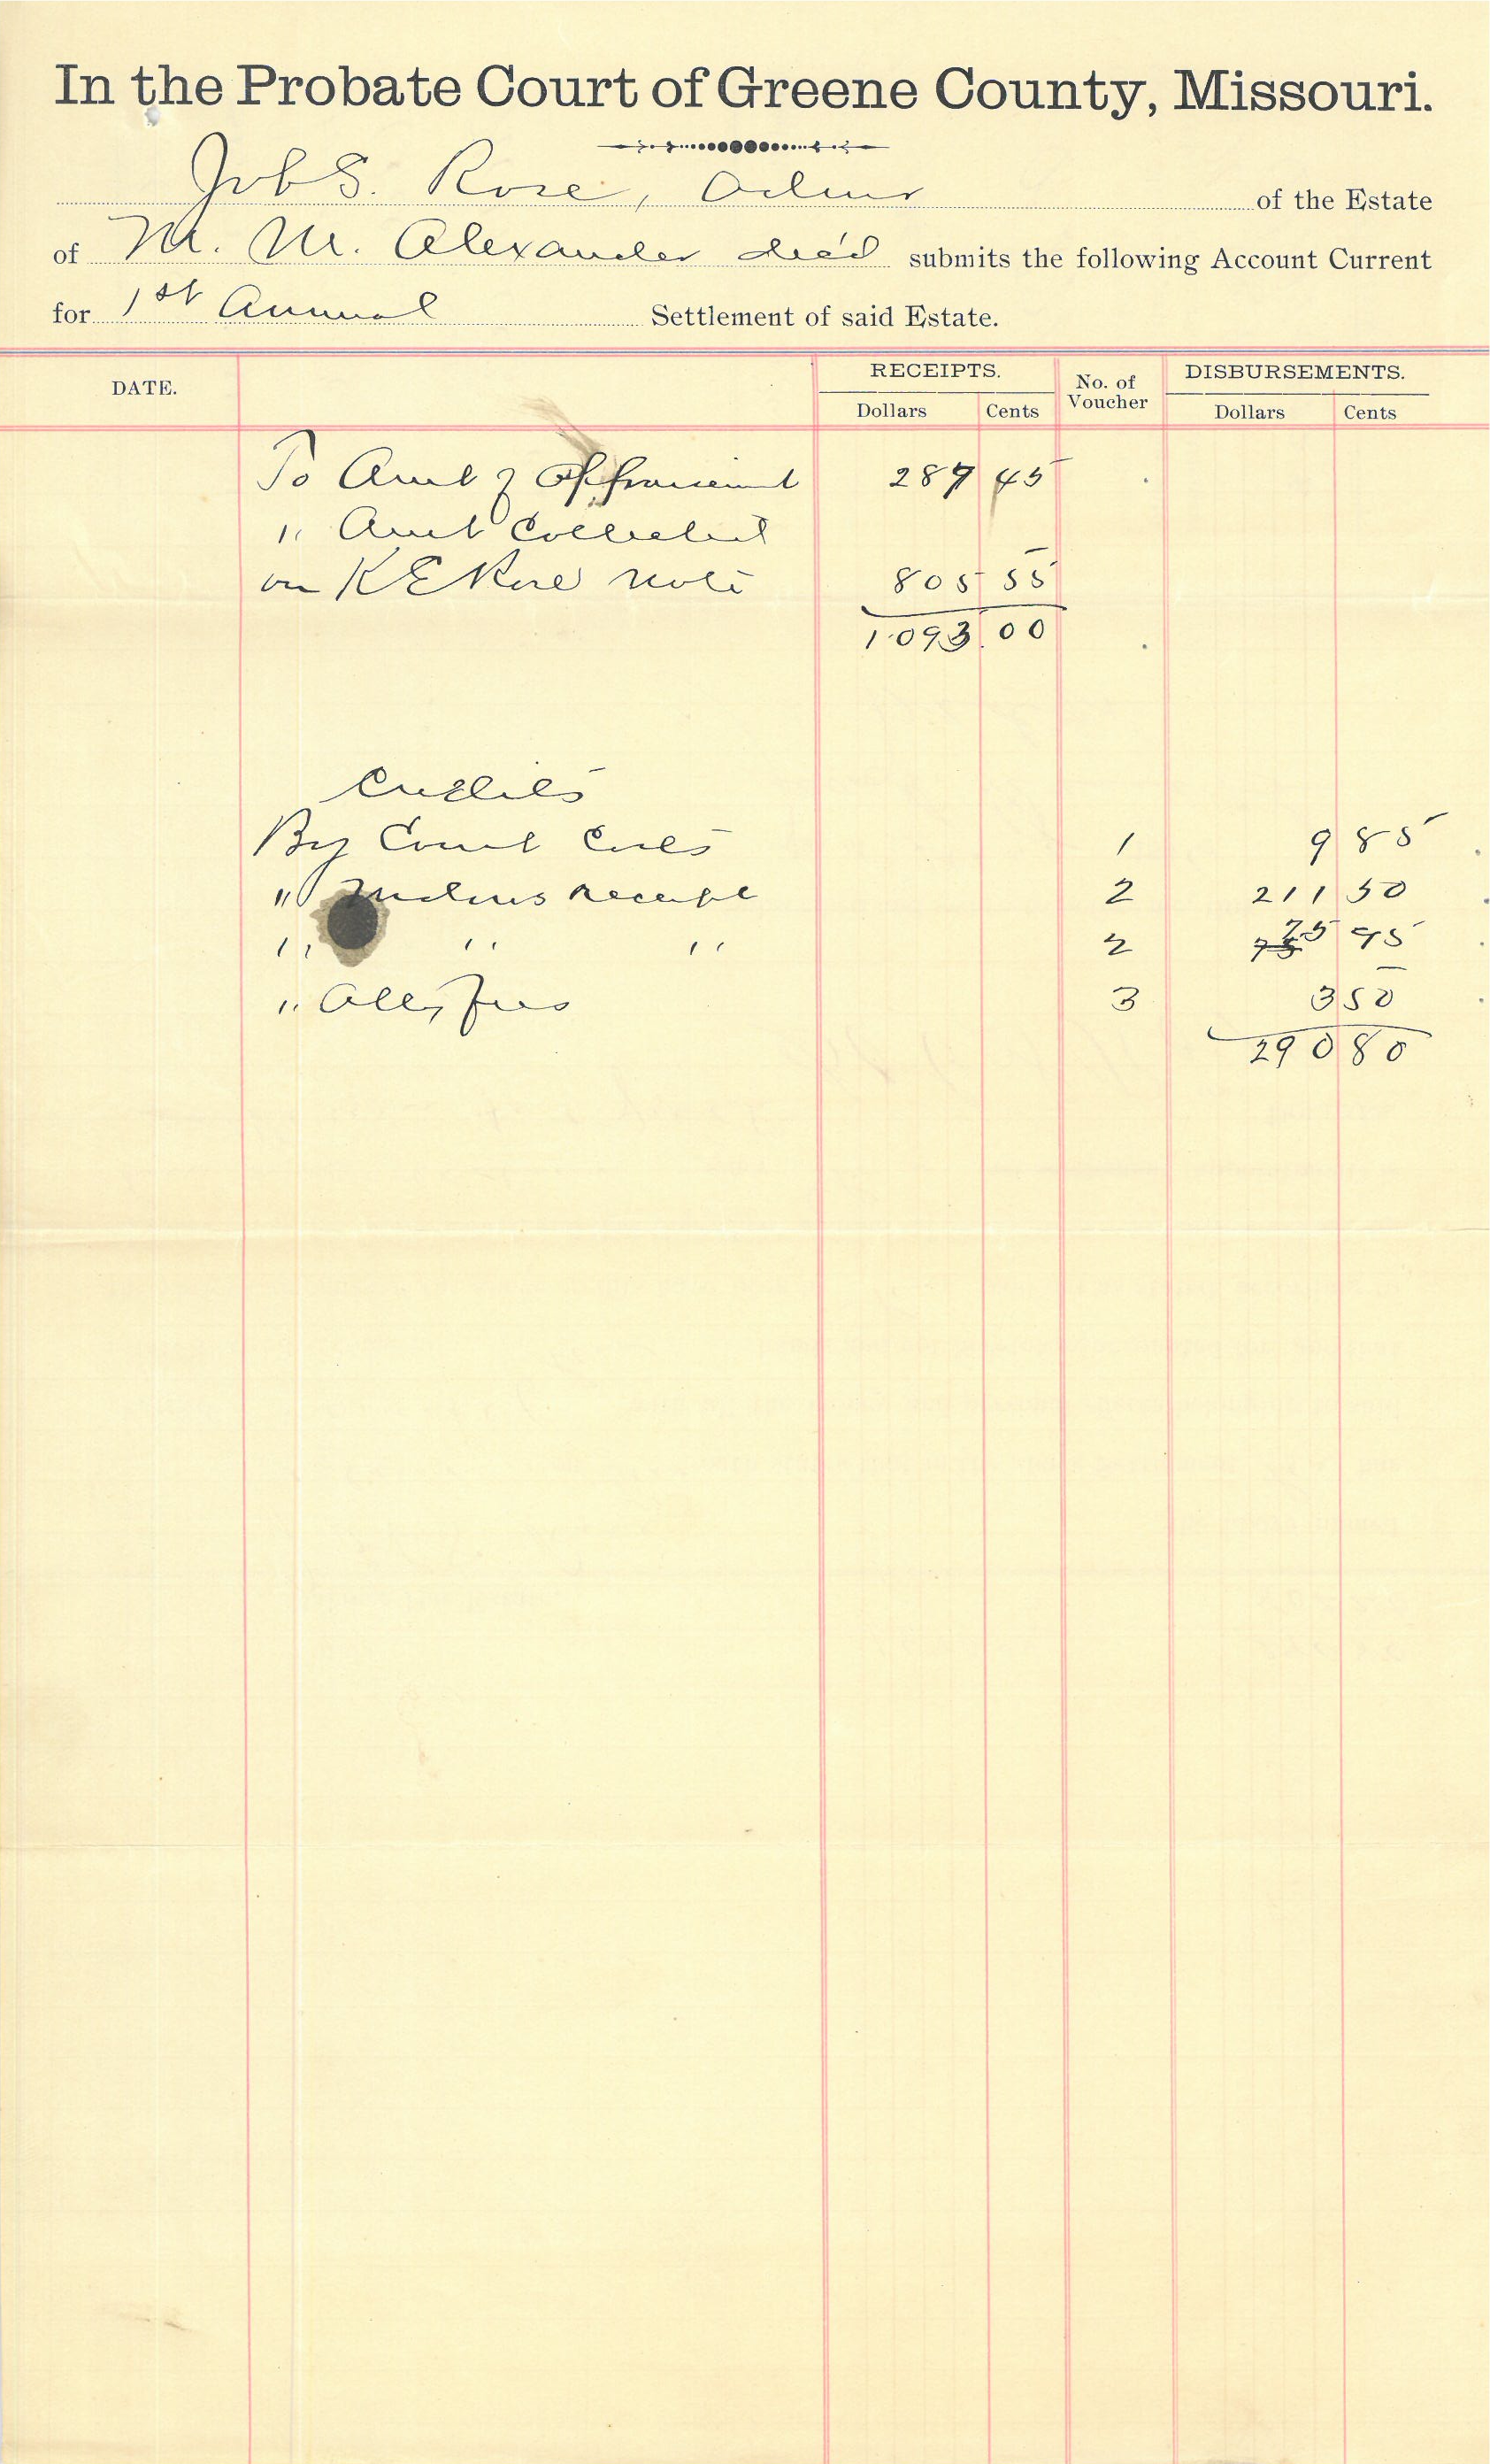 In the Probate Court of Greene County, Missouri.
Job S. Rose, Admr of the Estate
of M. M. Alexander dec'd submits the following Account Current
for 1st Annual Settlement of said Estate.
DATE. RECEIPTS. No. of Voucher DISBURSEMENTS.
Dollars Cents Dollars Cents
To Amt of appraisment 287 45
" Amt Collected
on K E Rose note 805 55
1093.00
Credits
By Court Costs 1 9 85
" Widows Receipt 2 211 50
" " " 2 75 95
" Atty fees 3 3 50
290 80